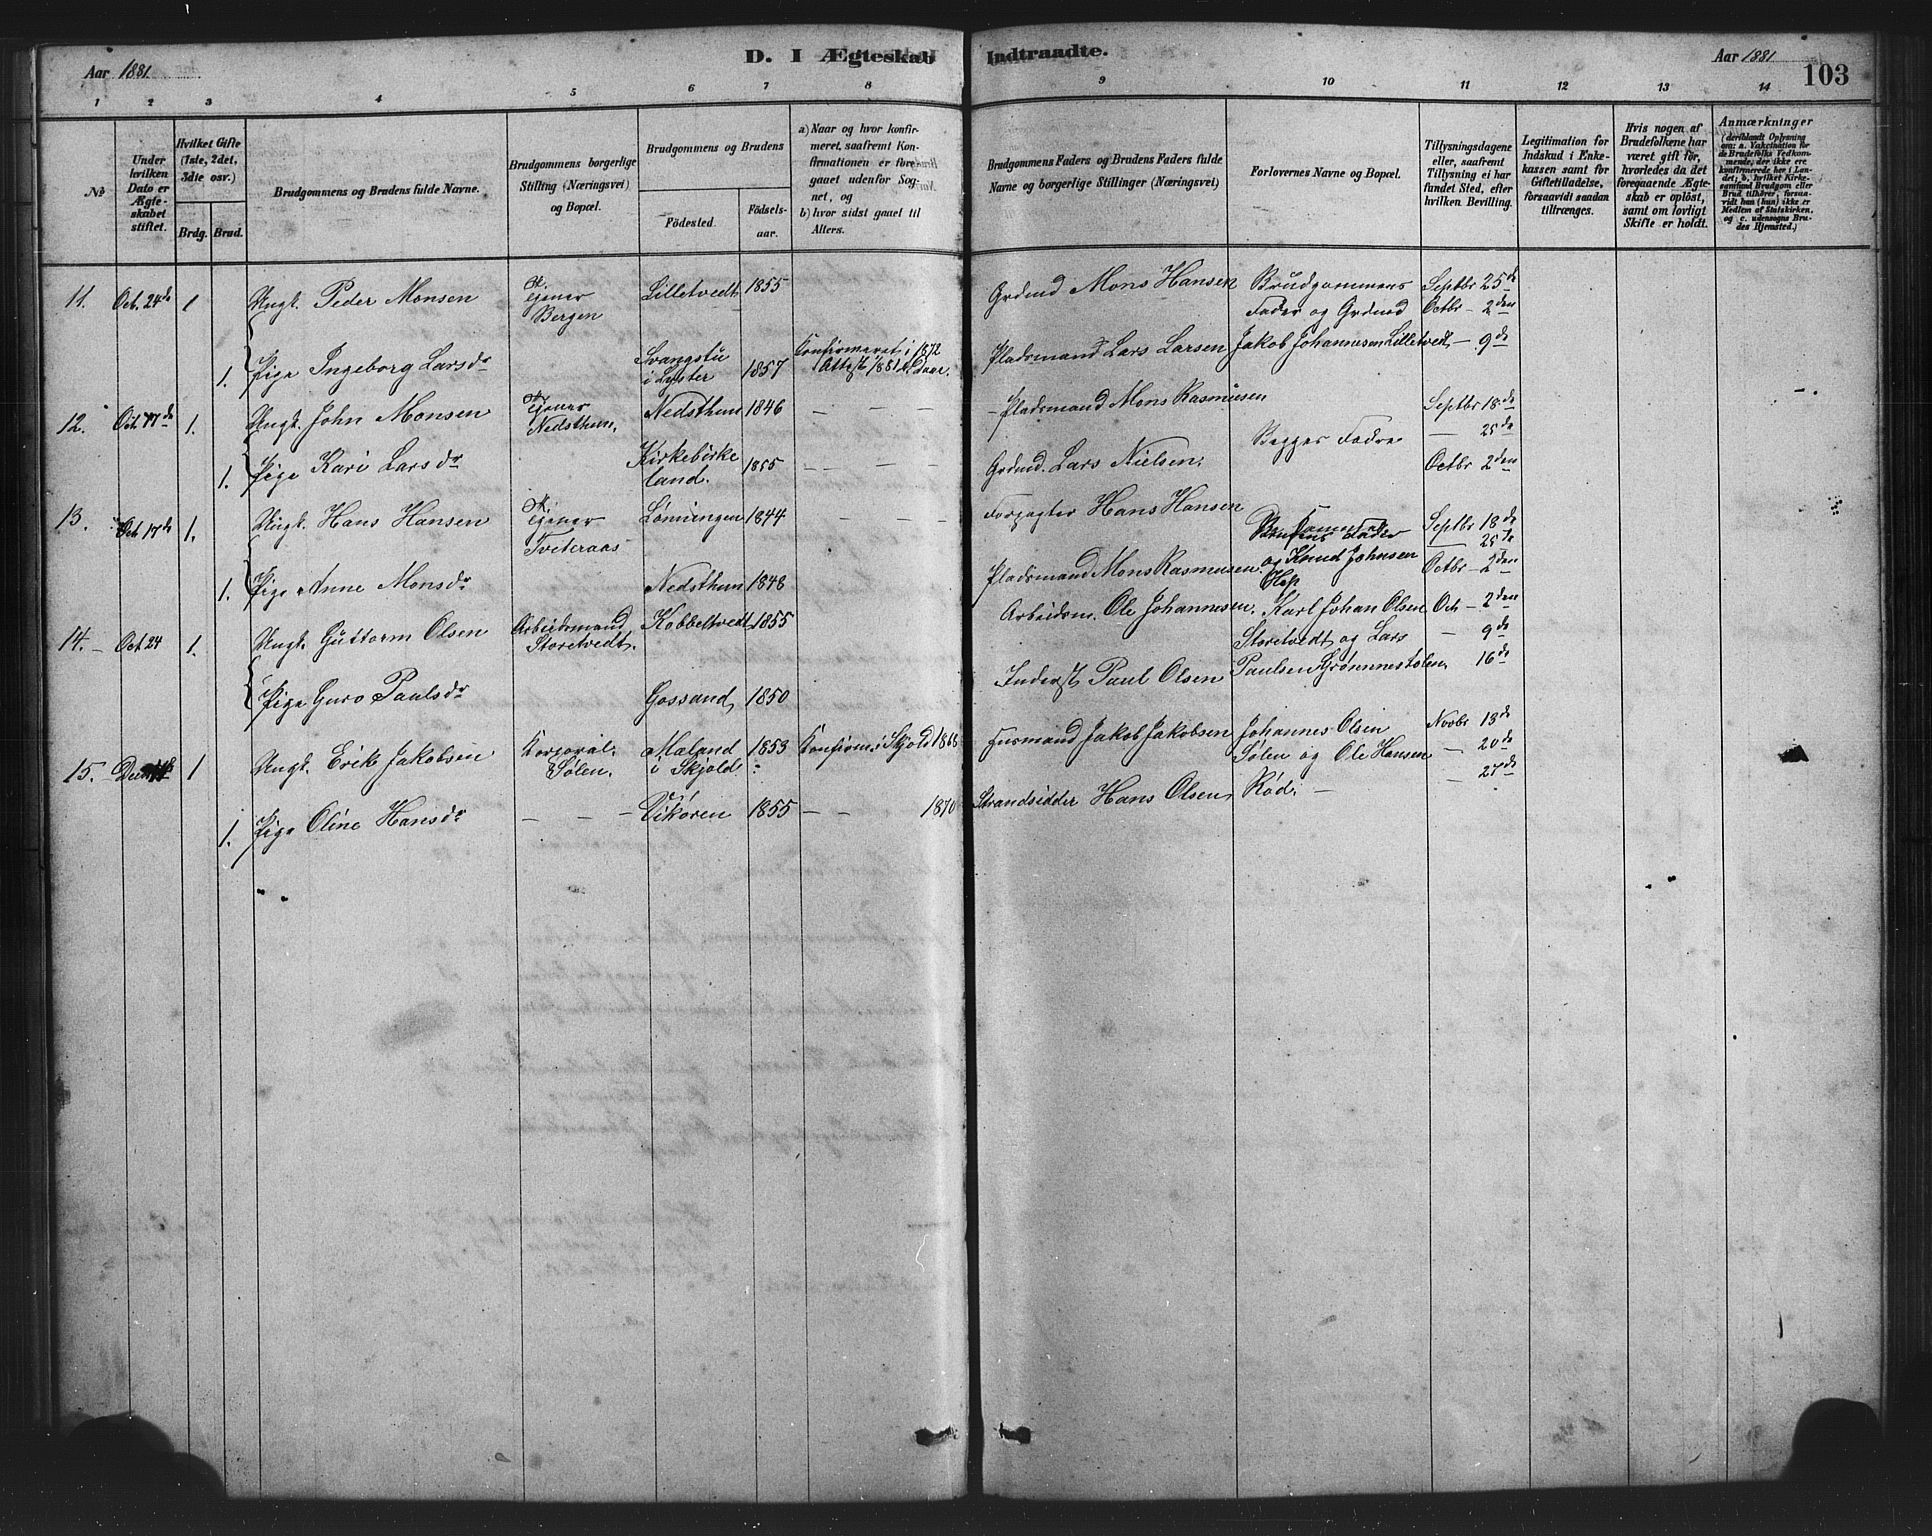 Aar 1881.
D. I Ægteskab
Indtraadte.
Aar 1881
103
1 2 3 4 5 6 7 8
9 10 11 12 13 14
No
Under hvilken Dato er Ægteskabet stiftet.
Hvilket Gifte (1ste, 2det, 3die osv.)
Brdg. Brud.
Brudgommens og Brudens fulde Navne.
Brudgommens borgerlige Stilling (Næringsvei) og Bopæl.
Brudgommens og Brudens
Födested.
Födselsaar.
a) Naar og hvor konfirmeret, saafremt Konfirmationen er foregaaet udenfor Sognet, og
b) hvor sidst gaaet til Alters.
Brudgommens Faders og Brudens Faders fulde Navne og borgerlige Stillinger (Næringsvei)
Forlovernes Navne og Bopæl.
Tillysningsdagene eller, saafremt Tillysning ei har fundet Sted, efter hvilken Bevilling.
Legitimation for Indskud i Enkekassen samt for Giftetilladelse, forsaavidt saadan tiltrænges.
Hvis nogen af Brudefolkene har været gift för, hvorledes da det foregaaende Ægteskab er oplöst, samt om lovligt Skifte er holdt.
Anmærkninger
(deriblandt Oplysning om: a. Vakcination for de Brudefolks Vedkommende, der ikke ere konfirmerede her i Landet; b. hvilket Kirkesamfund Brudgom eller Brud tilhörer, forsavidt han (hun) ikke er Medlem af Statskirken, og c. udensogns Brudes Hjemsted.)
11. Oct. 24de 1 Ungk. Peder Monsen Tjener Bergen Lilletvedt 1855 Grdmd Mons Hansen Brudgommens Fader og Grdmd Septbr 25de Octbr 2den
1. Pige Ingeborg Larsdr Svangstu i Lyster 1857 Konfirmeret i 1872 Attest 1881 Pladsmand Lars Larsen Jakob Johannesen Lilletvedt - 9de
12. Oct. 17de 1. Ungk. John Monsen Tjener Nedsthun. Nedsthun 1846 — — — — Pladsmand Mons Rasmusen Septbr 18de
1. Pige Kari Larsdr Kirkebirkeland. 1855 — — — — Grdmd. Lars Nielsen. Begges Fædre — 25de Octbr 2den
13. Oct 17de 1. Ungk. Hans Hansen Tjener Tveteraas Lönningen 1844 — — — — Forpagter Hans Hansen Brudens Fader Septbr 18de — 25de
1. Pige Anne Monsdr Nedsthun 1848 Pladsmand Mons Rasmusen og Knud Johnsen Hop Octbr - 2den
14. Oct 24 1. Ungk. Guttorm Olsen Arbeidsmand Storetvedt. Kobbeltvedt 1855 Arbeidsm. Ole Johannesen. Karl Johan Olsen Storetvedt og Lars Oct - 2den — 9de
Pige Guro Paulsdr Gossand 1850 Inderst Paul Olsen Paulsen Grönnestölen. 16de
15. 1 Ungk. Erik Jakobsen Korporal. Sölen. Maland i Skjold 1853 Konfirm. i Skjold 1868 Husmand Jakob Jakobsen Johannes Olsen Sölen og Ole Hansen Novbr 13de — 20de
1. Pige Oline Hansdr — — — Vikören 1855 — — 1870 Strandsidder Hans Olsen Röd. — — 27de